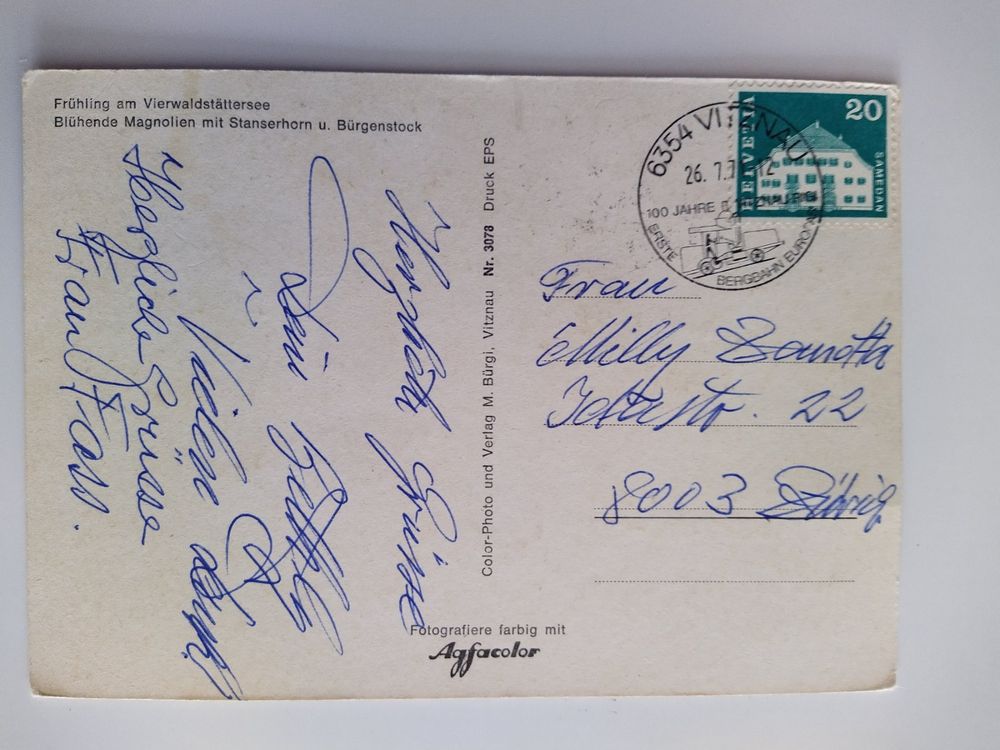 Frühling am Vierwaldstättersee
Blühende Magnolien mit Stanserhorn u. Bürgenstock
Herzliche Grüsse
Dein
Vielen Dank!
Herzliche Grüsse
Frau Fass.
Color-Photo und Verlag M. Bürgi, Vitznau Nr. 3078 Druck EPS
Fotografiere farbig mit
Agfacolor
HELVETIA
20
SAMEDAN
6354 VITZNAU
26. 7.
12
100 JAHRE
ERSTE BERGBAHN EUROPAS
Frau
Milly Zanotta
22
8003 Zürich